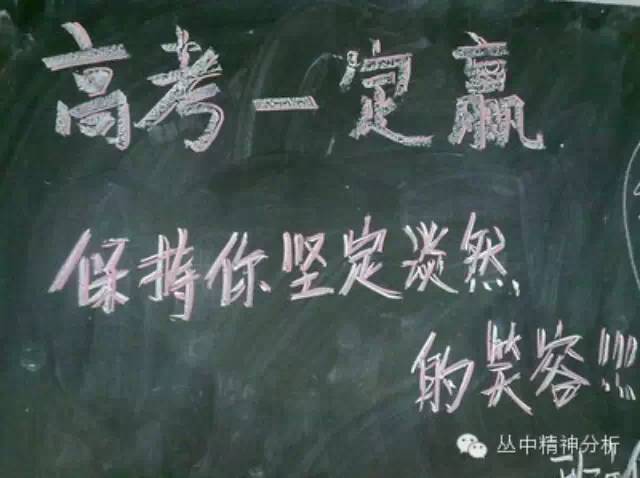 高考一定赢
保持你坚定淡然
的笑容!!!
丛中精神分析